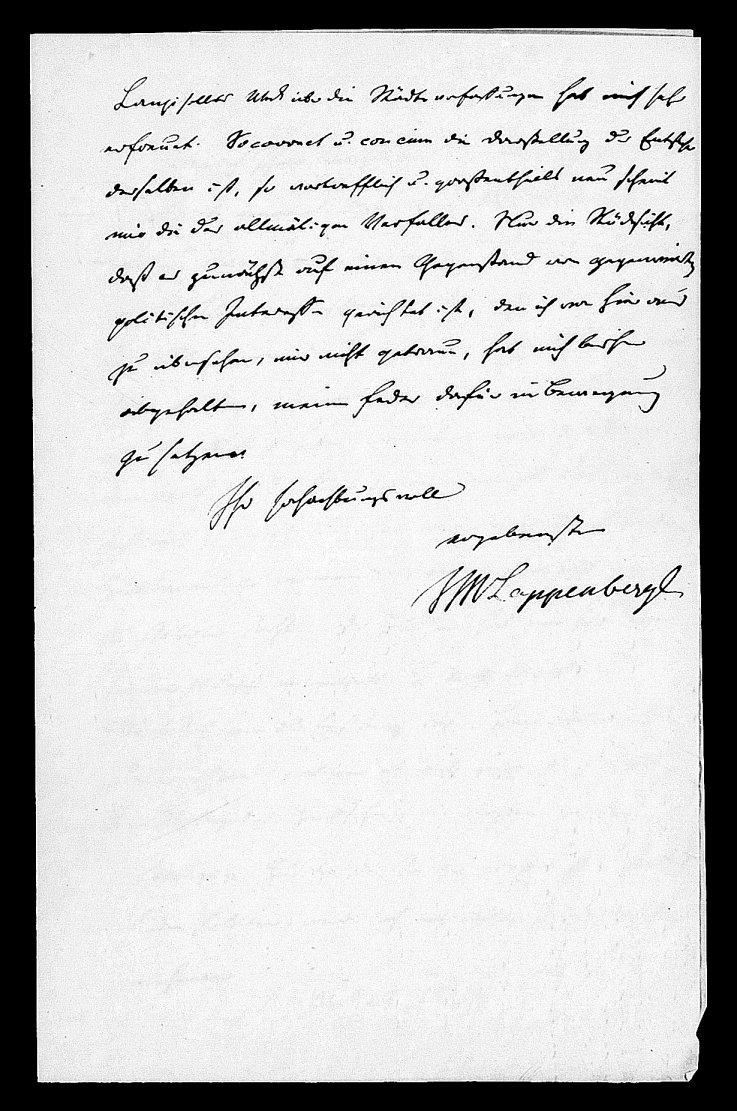 Lancizolles Werk über die Städteverfassungen hat mich sehr
erfreuet. So correct u. concinn die Darstellung der Entsteh
derselben ist, so vortrefflich u. großentheils neu scheint
mir die des allmäligen Verfalles. Nur die Rücksicht,
daß er zunächst auf einen Gegenstand von gegenwärtig
politischen Interesse gerichtet ist, den ich von hier aus
zu übersehen, mir nicht getraue, hat mich bisher
abgehalten, meine Feder dafür in Bewegung
zu setzen.
Ihr hochachtungsvoll
ergebenster
JMLappenberg